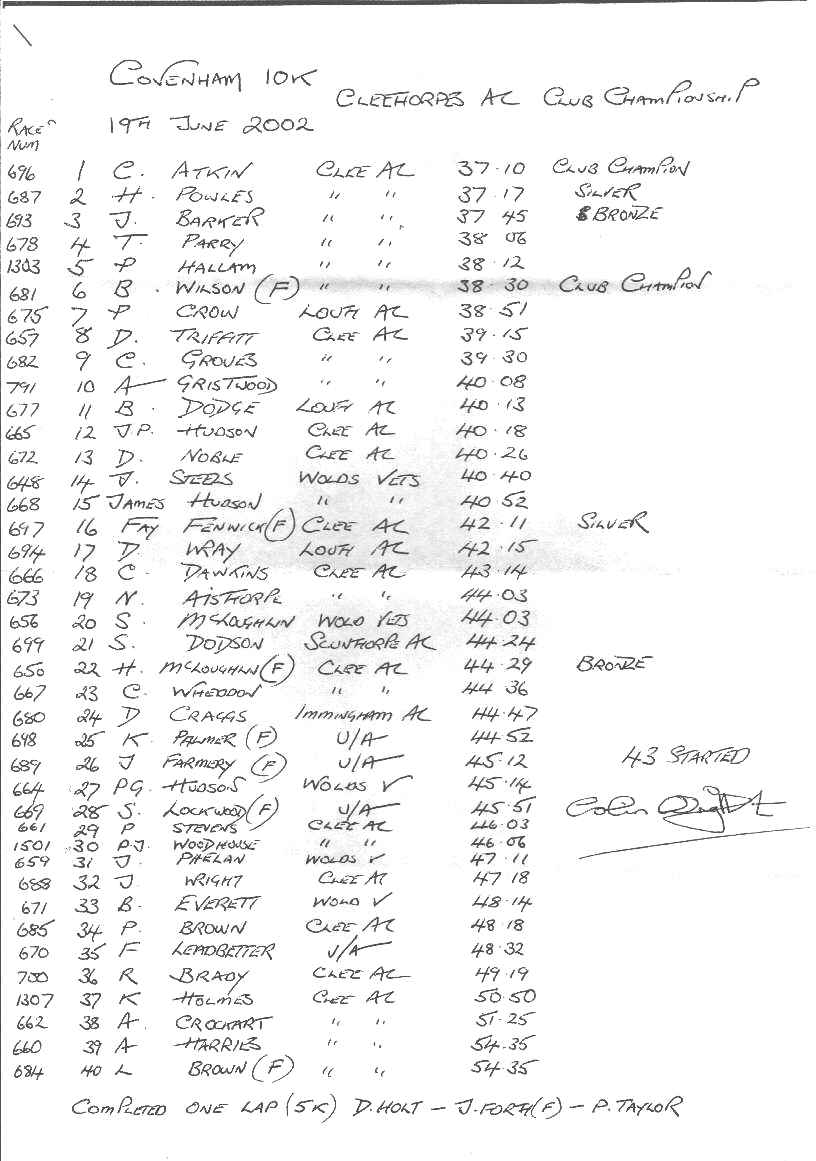 COVENHAM 10K
CLEETHORPES AC CLUB CHAMPIONSHIP
RACE NUM 19TH JUNE 2002
696 1 C. ATKIN CLEE AC 37.10 CLUB CHAMPION
687 2 H. POWLES " " 37.17 SILVER
693 3 J. BARKER " " 37 45 BRONZE
678 4 T. PARRY " " 38 06
1303 5 P HALLAM " " 38.12
681 6 B. WILSON (F) " " 38.30 CLUB CHAMPION
675 7 P CROW LOUTH AC 38.51
657 8 D. TRIFFITT CLEE AC 39.15
682 9 C. GROVES " " 39.30
791 10 A GRISTWOOD " " 40.08
677 11 B. DODGE LOUTH AC 40.13
665 12 JP. HUDSON CLEE AC 40.18
672 13 D. NOBLE CLEE AC 40.26
648 14 J. STEELS WOLDS VETS 40.40
668 15 JAMES HUDSON " " 40 52
697 16 FAY FENWICK (F) CLEE AC 42.11 SILVER
694 17 D. WRAY LOUTH AC 42.15
666 18 C. DAWKINS CLEE AC 43.14
673 19 N. AISTHORPE " " 44.03
656 20 S. McLOUGHLIN WOLD VETS 44.03
699 21 S. DODSON SCUNTHORPE AC 44.24
650 22 H. McLOUGHLIN (F) CLEE AC 44.29 BRONZE
667 23 C. WHEDDON " " 44 36
680 24 D CRAGGS IMMINGHAM AC 44.47
698 25 K. PALMER (F) U/A 44.52
689 26 J FARMERY (F) U/A 45.12
43 STARTED
664 27 PG. HUDSON WOLDS V 45.14
669 28 S. LOCKWOOD (F) U/A 45.51
Colin
661 29 P STEVENS CLEE AC 46.03
1501 30 P.J. WOODHOUSE " " 46.06
659 31 J. PHELAN WOLDS V 47.11
688 32 J. WRIGHT CLEE AC 47 18
671 33 B. EVERETT WOLD V 48.14
685 34 P. BROWN CLEE AC 48 18
670 35 F LEADBETTER U/A 48.32
700 36 R BRADY CLEE AC 49.19
1307 37 K HOLMES CLEE AC 50.50
662 38 A. CROCKART " " 51.25
660 39 A HARRIES " " 54.35
684 40 L BROWN (F) " " 54.35
COMPLETED ONE LAP (5K) D. HOLT - J. FORTH (F) - P. TAYLOR